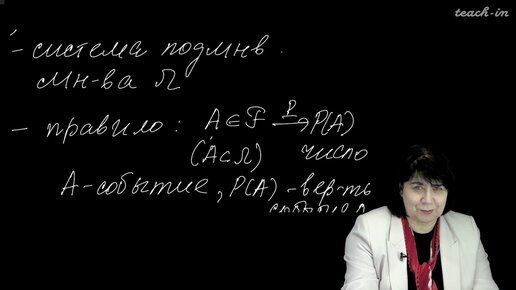 teach-in
- система подмнв.
мн-ва Ω
- правило: A ∈ F →^P P(A)
(A ⊂ Ω) число
A - событие, P(A) - вер-ть
события A